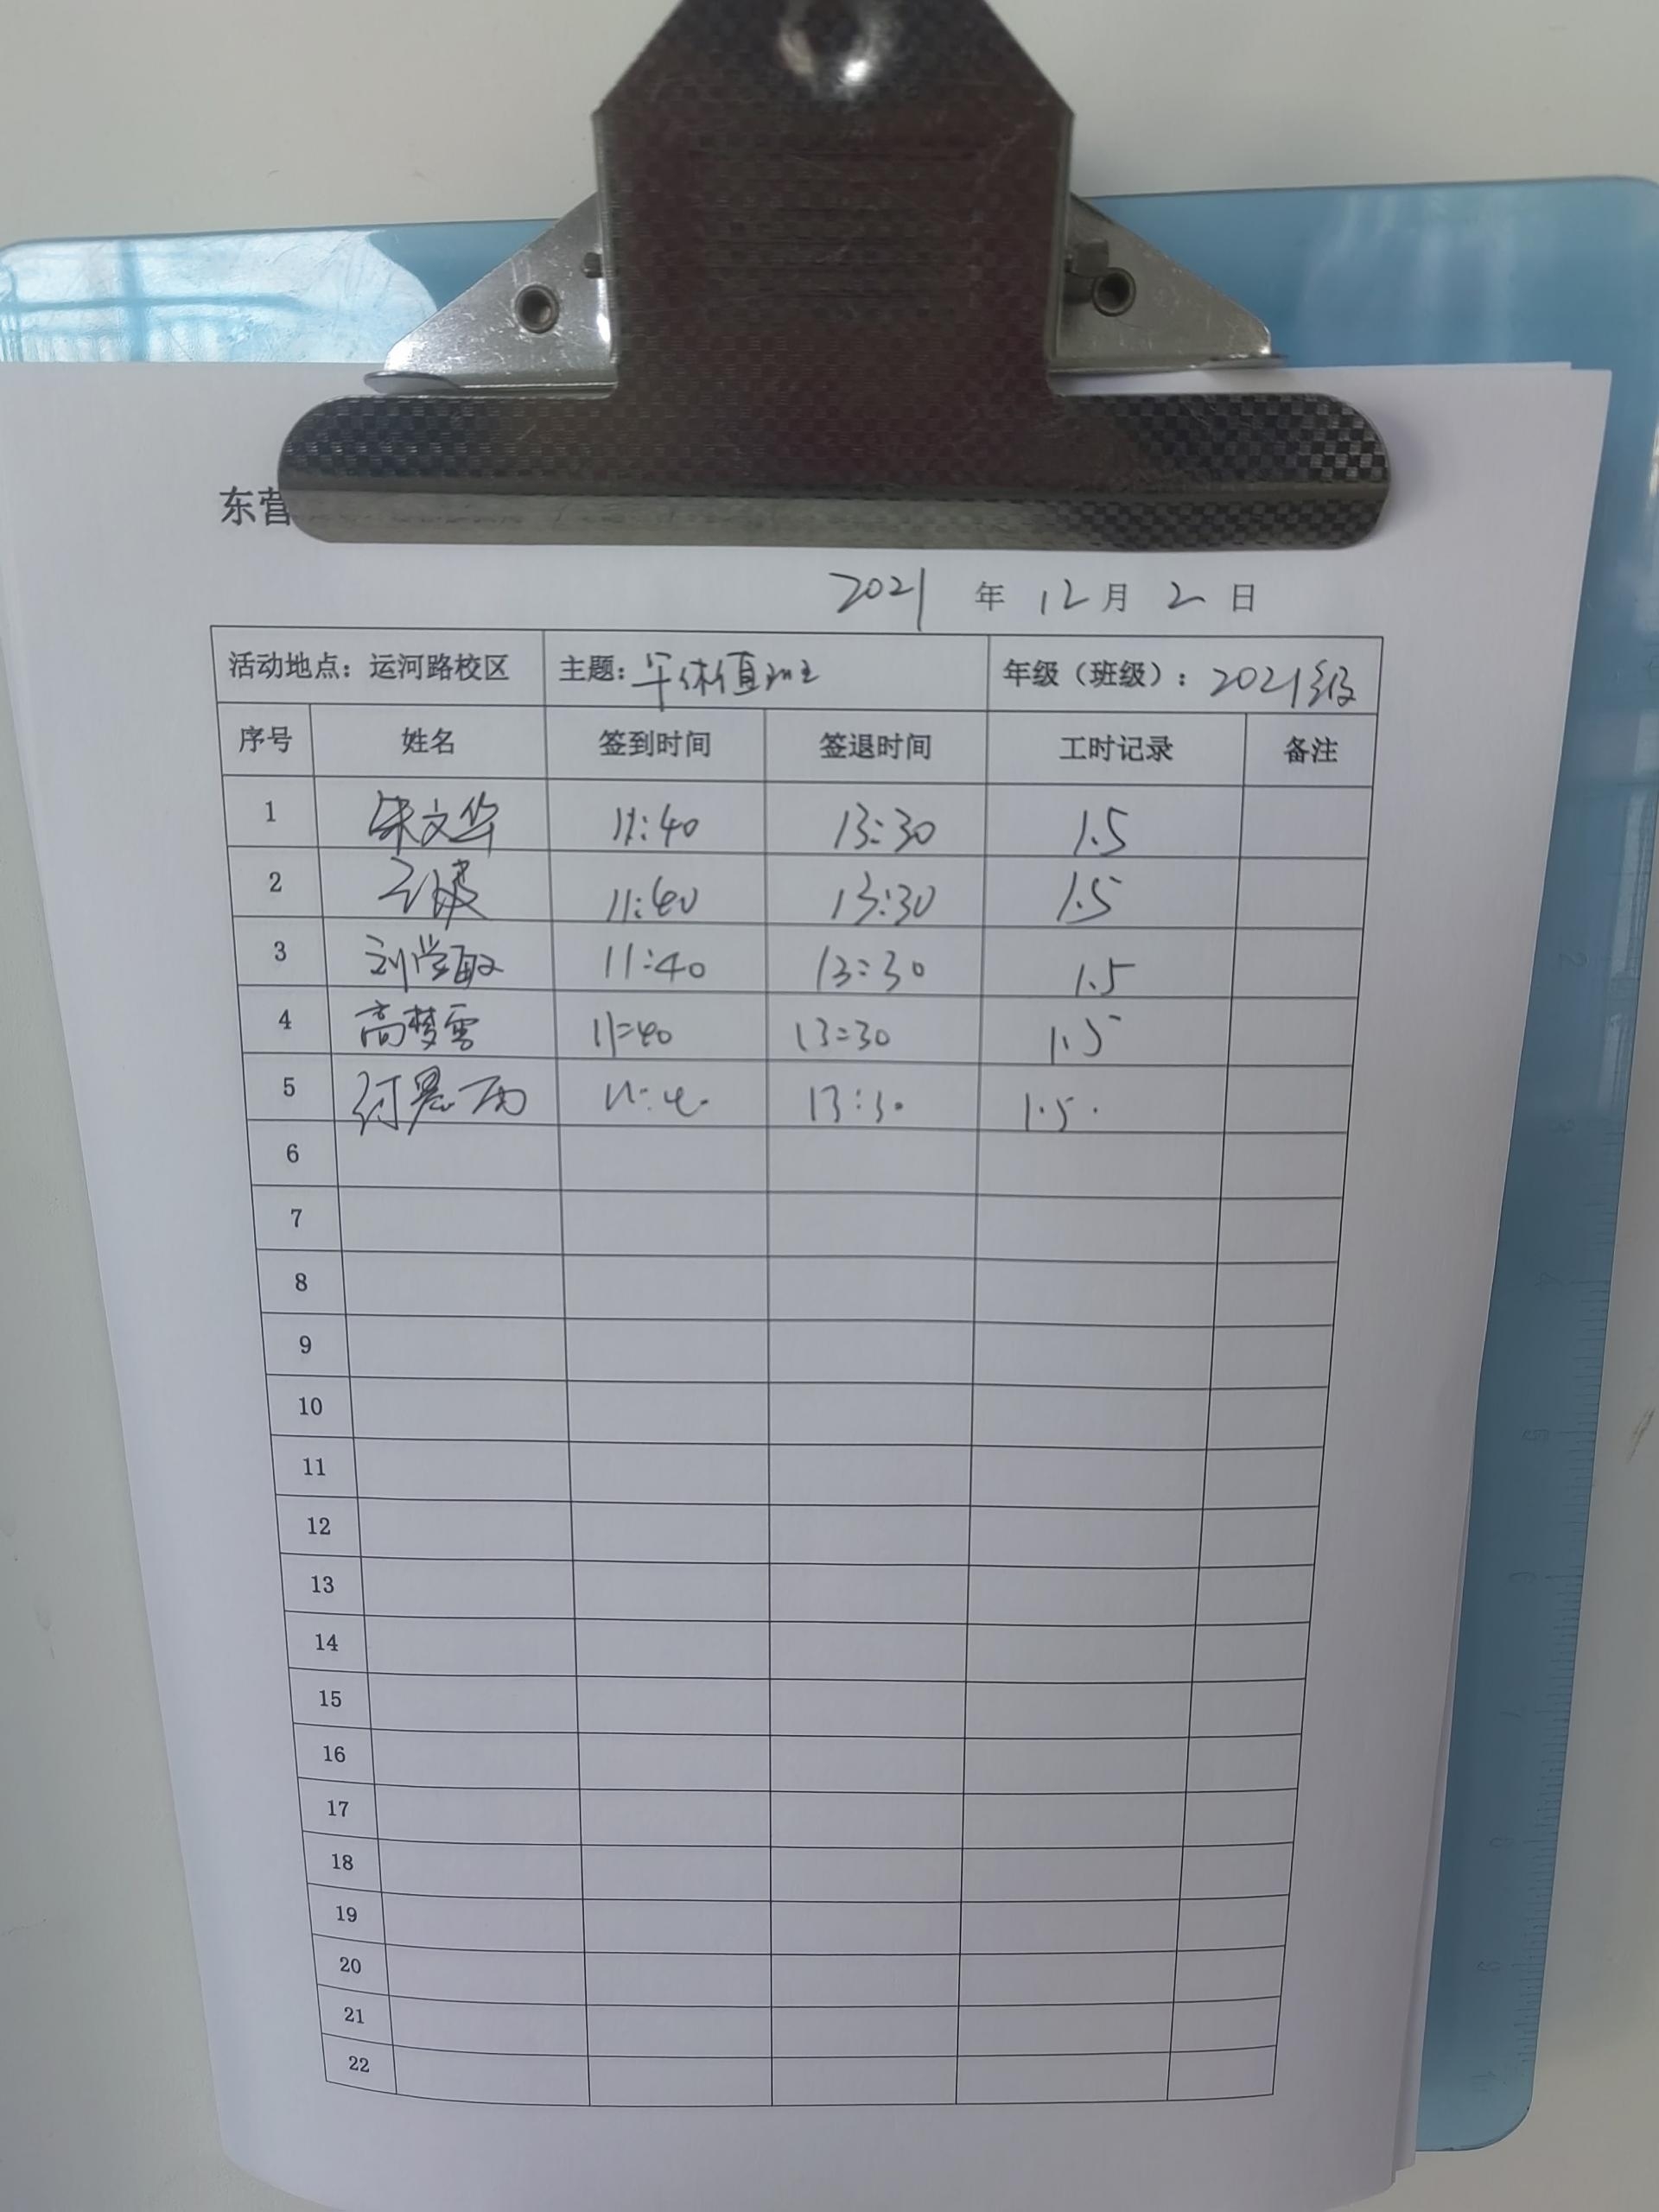 东营
2021 年 12 月 2 日
活动地点：运河路校区 主题：午休值班 年级（班级）：2021级
序号 姓名 签到时间 签退时间 工时记录 备注
1 朱文华 11:40 13:30 1.5
2 11:40 13:30 1.5
3 刘学敏 11:40 13:30 1.5
4 高梦雪 11:40 13:30 1.5
5 11:40 13:30 1.5
6
7
8
9
10
11
12
13
14
15
16
17
18
19
20
21
22